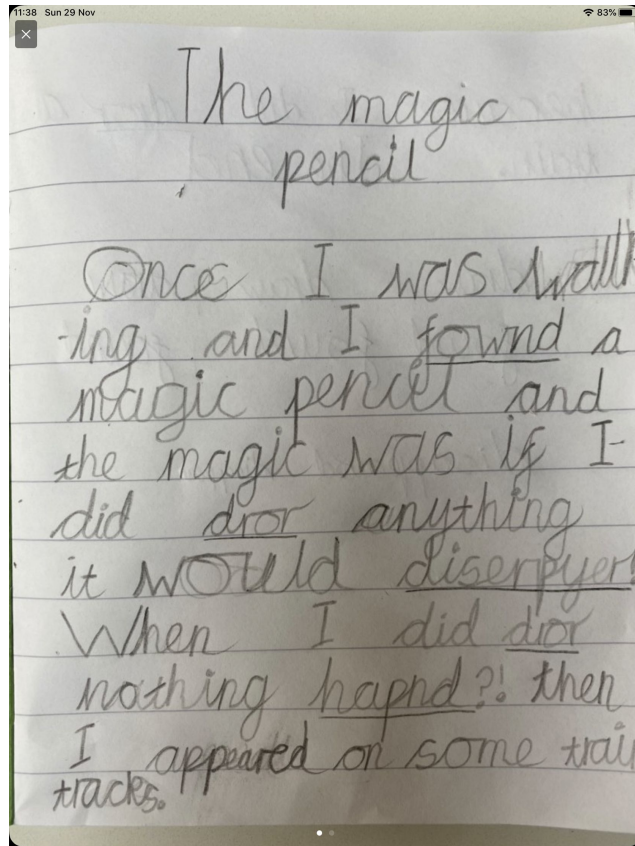 11:38 Sun 29 Nov 83%
The magic
pencil
Once I was walk
-ing and I fownd a
magic pencil and
the magic was if I
did dror anything
it would diserpyer!
When I did dror
nothing hapnd?! then
I appeared on some train
tracks.